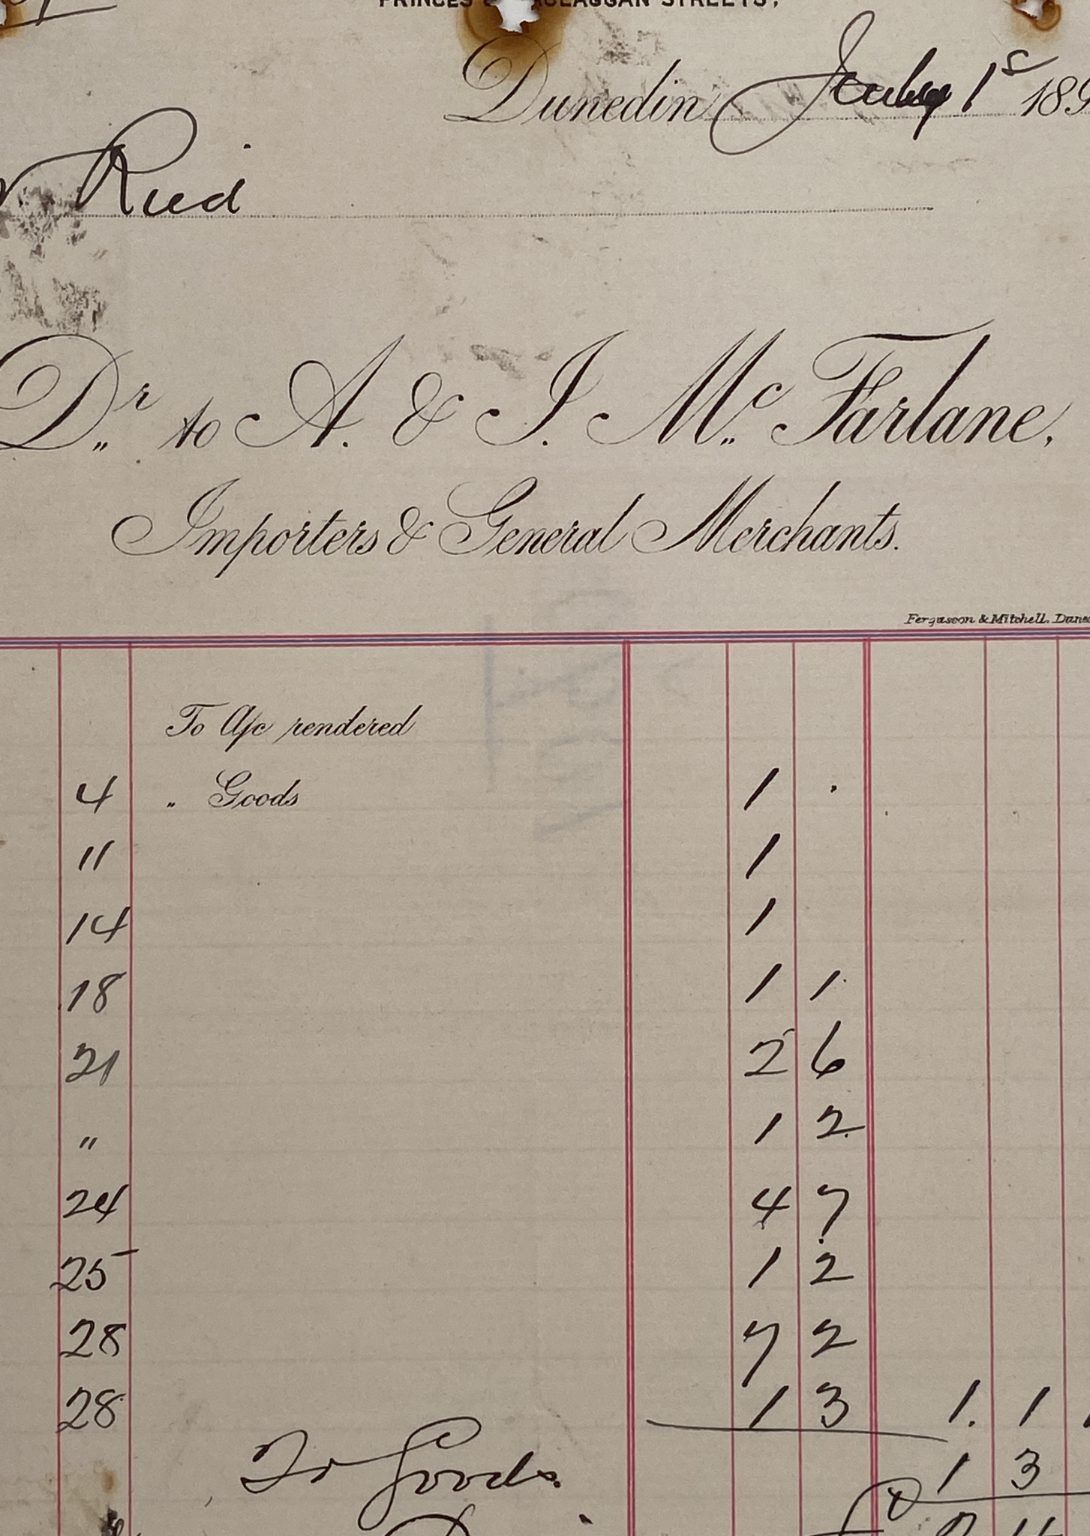 PRINCES & MACLAGGAN STREETS,
Dunedin July 1st 189
Reid
Dr. to A. & J. Mc. Farlane,
Importers & General Merchants.
Fergusson & Mitchell. Dune
To A/c rendered
4 " Goods 1 .
11 1
14 1
18 1 1
21 2 6
" 1 2
24 4 7
25 1 2
28 7 2
28 1 3 1. 1 1
To Goods 1 3